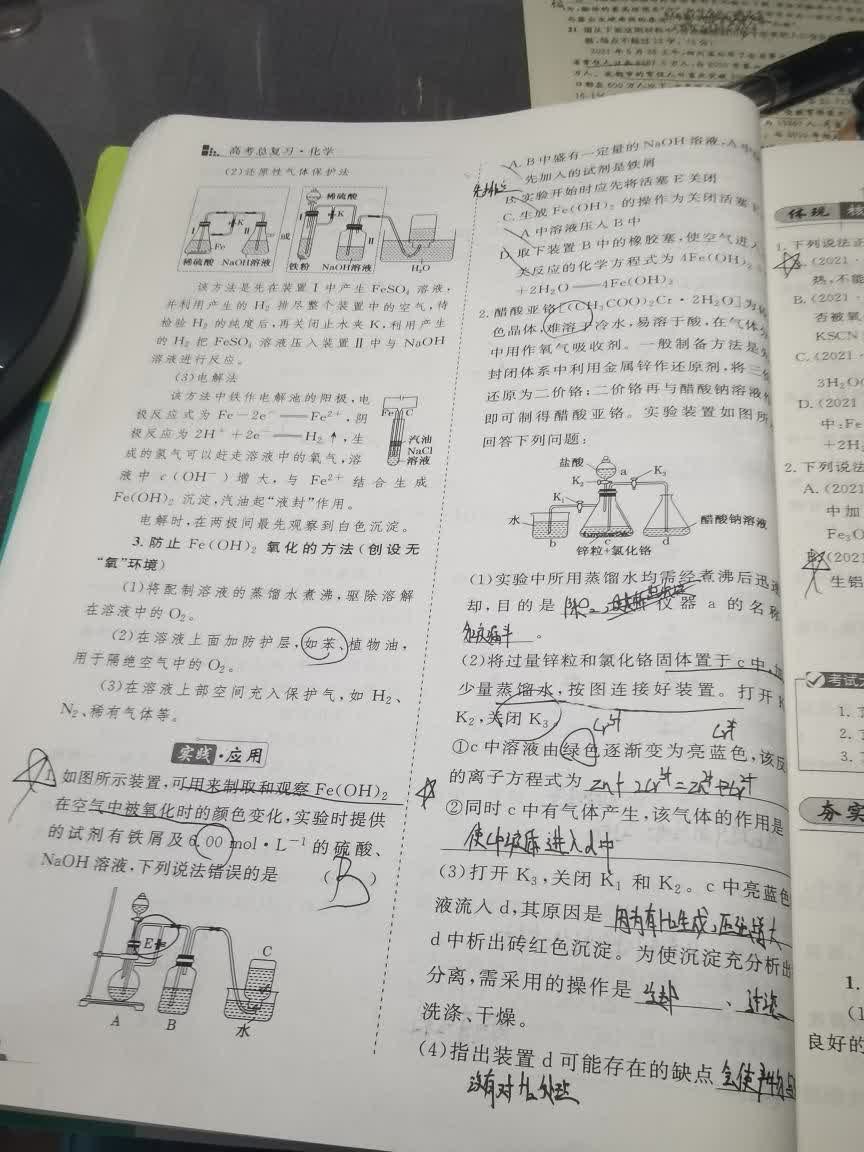 高考总复习·化学
(2)还原性气体保护法
稀硫酸
K
K
I
II
或
I
II
Fe
稀硫酸 NaOH溶液
铁粉
NaOH溶液
H₂O
该方法是先在装置Ⅰ中产生 FeSO₄ 溶液,
并利用产生的 H₂ 排尽整个装置中的空气,待
检验 H₂ 的纯度后,再关闭止水夹 K,利用产生
的 H₂ 把 FeSO₄ 溶液压入装置Ⅱ中与 NaOH
溶液进行反应。
(3)电解法
该方法中铁作电解池的阳极,电
极反应式为 Fe－2e⁻══Fe²⁺,阴
极反应为 2H⁺＋2e⁻══H₂↑,生
成的氢气可以赶走溶液中的氧气,溶
液中 c(OH⁻)增大,与 Fe²⁺ 结合生成
Fe(OH)₂ 沉淀,汽油起“液封”作用。
Fe
C
汽油
NaCl
溶液
电解时,在两极间最先观察到白色沉淀。
3.防止 Fe(OH)₂ 氧化的方法(创设无
“氧”环境)
(1)将配制溶液的蒸馏水煮沸,驱除溶解
在溶液中的 O₂。
(2)在溶液上面加防护层,如苯、植物油,
用于隔绝空气中的 O₂。
(3)在溶液上部空间充入保护气,如 H₂、
N₂、稀有气体等。
实践·应用
1.如图所示装置,可用来制取和观察 Fe(OH)₂
在空气中被氧化时的颜色变化,实验时提供
的试剂有铁屑及 6.00 mol·L⁻¹ 的硫酸、
NaOH 溶液,下列说法错误的是 (B)
E
C
A
B
水
A.B 中盛有一定量的 NaOH 溶液,A 中
先加入的试剂是铁屑
B.实验开始时应先将活塞 E 关闭
C.生成 Fe(OH)₂ 的操作为关闭活塞
A 中溶液压入 B 中
D.取下装置 B 中的橡胶塞,使空气进入
关反应的化学方程式为 4Fe(OH)₂
＋2H₂O══4Fe(OH)₃
2.醋酸亚铬[(CH₃COO)₂Cr·2H₂O]为
色晶体,难溶于冷水,易溶于酸,在气体
中用作氧气吸收剂。一般制备方法是
封闭体系中利用金属锌作还原剂,将三
还原为二价铬;二价铬再与醋酸钠溶液
即可制得醋酸亚铬。实验装置如图所
回答下列问题:
盐酸
a
K₃
K₂
K₁
水
醋酸钠溶液
b
c
d
锌粒+氯化铬
(1)实验中所用蒸馏水均需经煮沸后迅速
却,目的是 除O₂ 仪器 a 的名称
分液漏斗。
(2)将过量锌粒和氯化铬固体置于 c 中,加
少量蒸馏水,按图连接好装置。打开 K
K₂,关闭 K₃。
Cr³⁺
Cr²⁺
①c 中溶液由绿色逐渐变为亮蓝色,该反
的离子方程式为 Zn+2Cr³⁺=Zn²⁺+2Cr²⁺
②同时 c 中有气体产生,该气体的作用是
使c中溶液进入d中
(3)打开 K₃,关闭 K₁ 和 K₂。c 中亮蓝色
液流入 d,其原因是 因为有H₂生成,压强增大
d 中析出砖红色沉淀。为使沉淀充分析出
分离,需采用的操作是 冷却、过滤
洗涤、干燥。
(4)指出装置 d 可能存在的缺点 会使产物与
没有对H₂处理
体现
1.下列说法正
(2021·
热,不能
B.(2021·
否被氧
KSCN
C.(2021·
3H₂O(
D.(2021
中:Fe
＋2H₂
2.下列说法
A.(2021
中加
Fe₃O
(2021
生铝
考试
1.
2.
3.
夯实
1.
(1
良好的